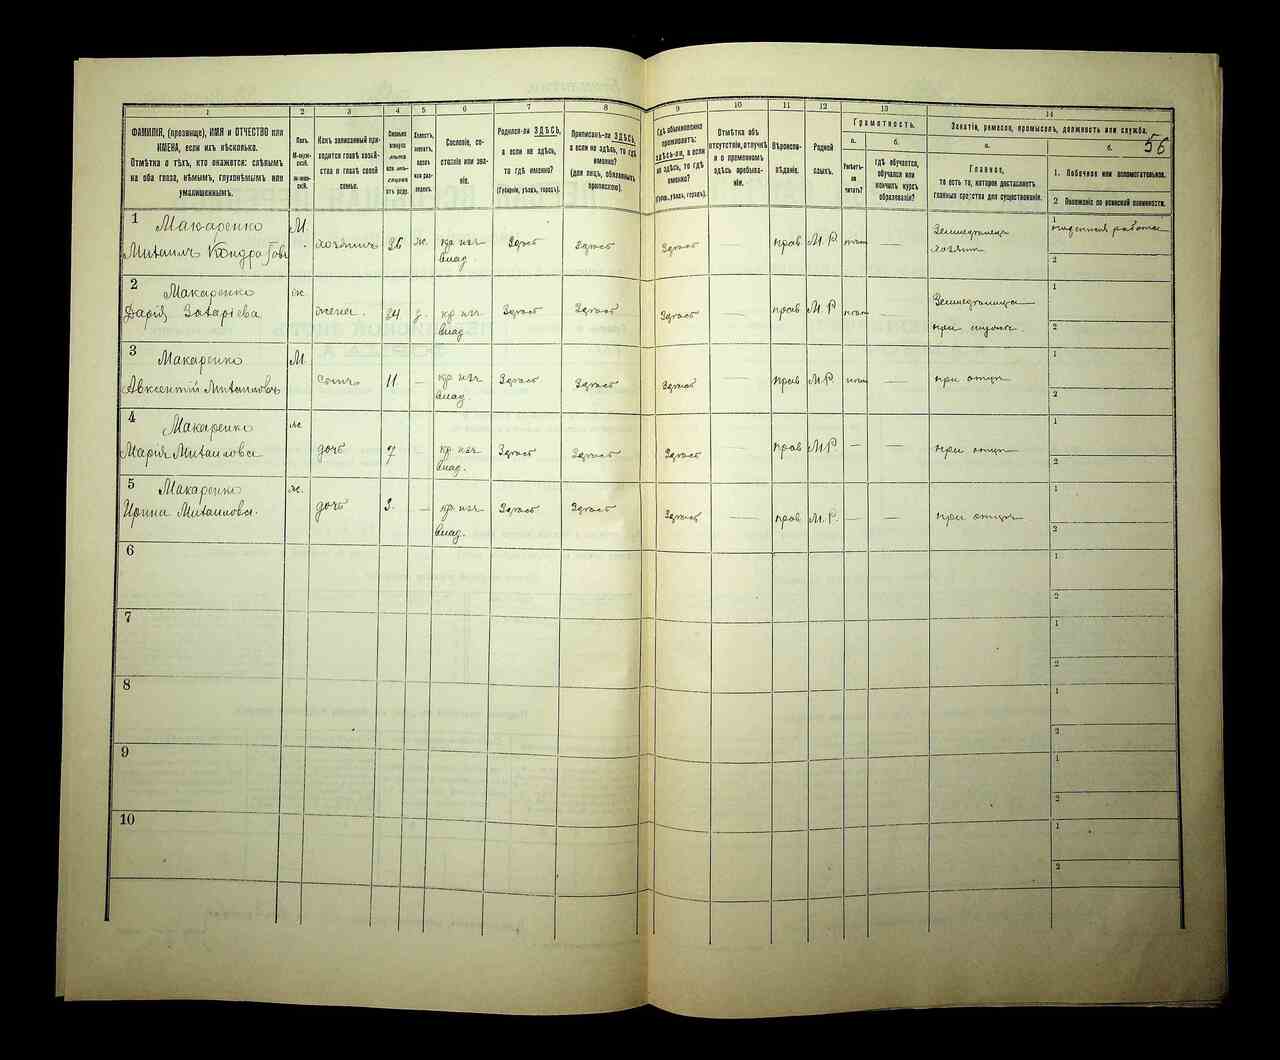 1 2 3 4 5 6 7 8 9 10 11 12 13 14
ФАМИЛІЯ, (прозвище), ИМЯ и ОТЧЕСТВО или
ИМЕНА, если ихъ нѣсколько.
Отмѣтка о тѣхъ, кто окажется: слѣпымъ
на оба глаза, нѣмымъ, глухонѣмымъ или
умалишеннымъ.
Полъ.
М-муж-
ской.
Ж-жен-
скій.
Какъ записанный при-
ходится главѣ хозяй-
ства и главѣ своей
семьи.
Сколько
минуло
лѣтъ
или мѣ-
сяцевъ
отъ роду.
Холостъ,
женатъ,
вдовъ
или раз-
веденъ.
Сословіе, со-
стояніе или зва-
ніе.
Родился-ли ЗДѢСЬ,
а если не здѣсь,
то гдѣ именно?
(Губернія, уѣздъ, городъ).
Приписанъ-ли ЗДѢСЬ,
а если не здѣсь, то гдѣ
именно?
(для лицъ, обязанныхъ
припискою).
Гдѣ обыкновенно
проживаетъ:
здѣсь-ли, а если
не здѣсь, то гдѣ
именно?
(Губерн., уѣздъ, городъ).
Отмѣтка объ
отсутствіи, отлучкѣ
и о временномъ
здѣсь пребыва-
ніи.
Вѣроиспо-
вѣданіе.
Родной
языкъ.
Грамотность.
а.
Умѣетъ-
ли
читать?
б.
Гдѣ обучается,
обучался или
кончилъ курсъ
образованія?
Занятіе, ремесло, промыселъ, должность или служба.
56
а.
Главное,
то есть то, которое доставляетъ
главныя средства для существованія.
б.
1. Побочное или вспомогательное.
2 Положеніе по воинской повинности.
1 Макаренко М.
хозяинъ 36 ж. Здѣсь Здѣсь Здѣсь прав М.Р.
—
Земледѣлецъ
хозяинъ
1
2
2 Макаренко ж.
Дарія Захаріева жена. 34 Здѣсь Здѣсь Здѣсь — прав М.Р. —
1
2
3 Макаренко М
Авксентій Михаиловъ сынъ 11 — Здѣсь Здѣсь Здѣсь — прав М.Р. — при отцѣ
1
2
4 Макаренко ж
Марія Михаилова дочь 7 — Здѣсь Здѣсь Здѣсь — прав М.Р — — при отцѣ
1
2
5 Макаренко ж.
Ирина Михаилова. дочь 3. — Здѣсь Здѣсь Здѣсь — прав М.Р. — — при отцѣ
1
2
6 1
2
7 1
2
8 1
2
9 1
2
10 1
2